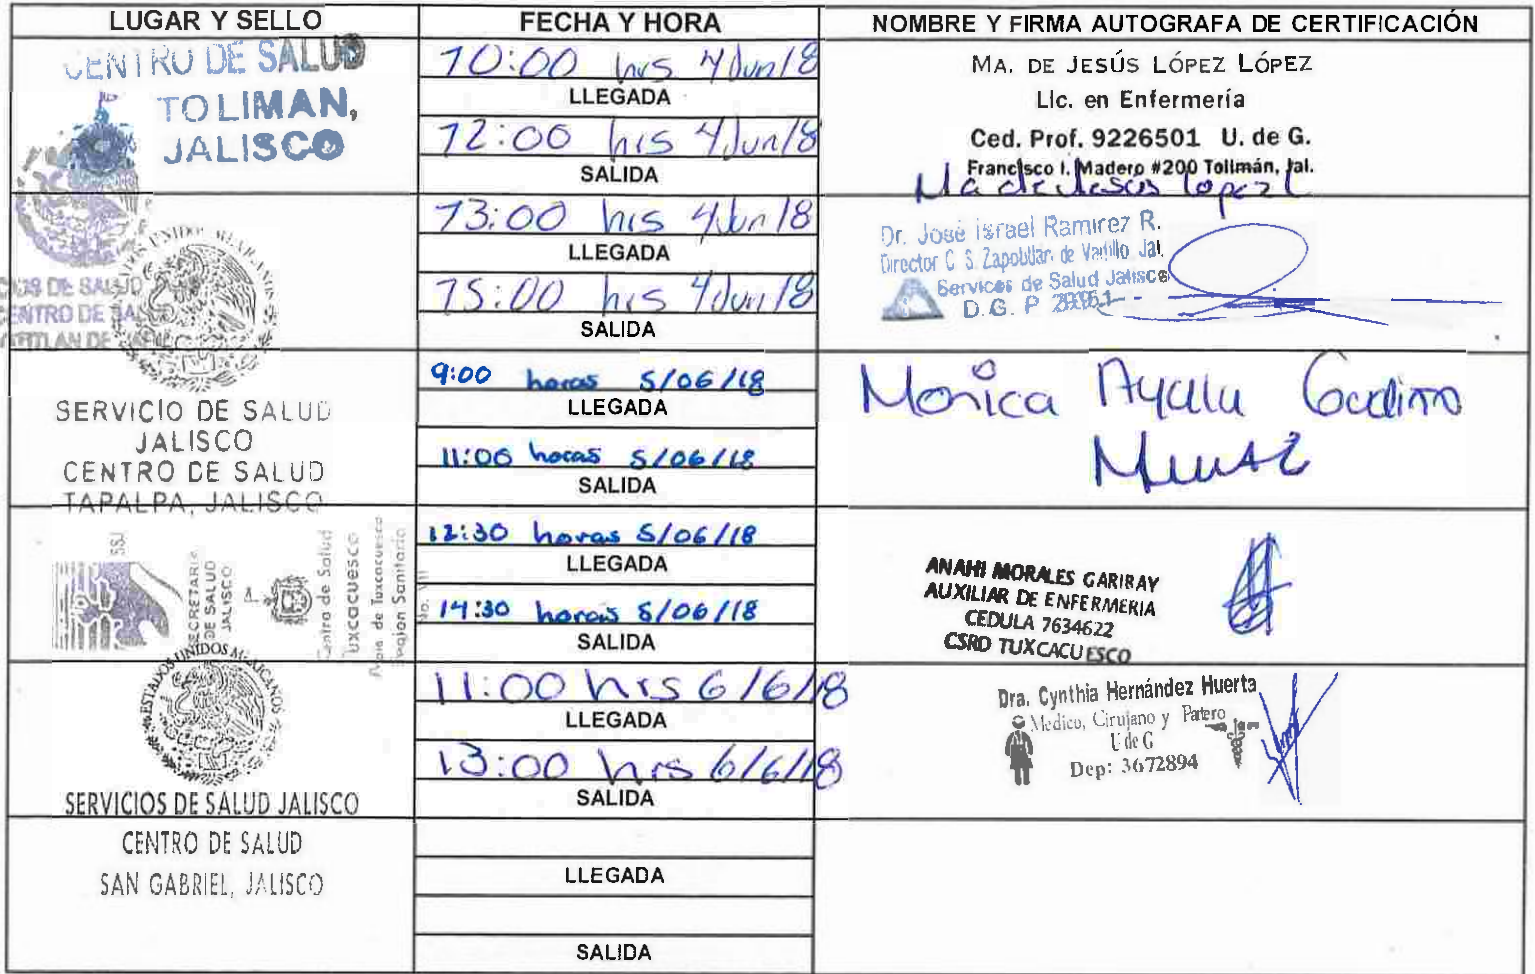 LUGAR Y SELLO
FECHA Y HORA
NOMBRE Y FIRMA AUTOGRAFA DE CERTIFICACIÓN
CENTRO DE SALUD
TOLIMAN,
JALISCO
10:00 hrs 4Jun/8
LLEGADA
12:00 hrs 4Jun/8
SALIDA
MA. DE JESÚS LÓPEZ LÓPEZ
Lic. en Enfermería
Ced. Prof. 9226501 U. de G.
Francisco I. Madero #200 Tolimán, Jal.
Ma de Jesus Lopez L
UNIDOS
DE SALUD
CENTRO DE SALUD
13:00 hrs 4Jun/8
LLEGADA
15:00 hrs 4Jun/8
SALIDA
Dr. José Israel Ramirez R.
Director C. S. Zapotitlán de Vadillo Jal.
Servicos de Salud Jalisco
D.G.P
SERVICIO DE SALUD
JALISCO
CENTRO DE SALUD
TAPALPA, JALISCO
9:00 horas 5/06/18
LLEGADA
11:00 horas 5/06/18
SALIDA
Monica Ayala Godino
SSJ
SECRETARIA
DE SALUD
JALISCO
Centro de Salud
Tuxcacuesco
de Tuxcacuesco
Region Sanitaria
No. VII
12:30 horas 5/06/18
LLEGADA
14:30 horas 5/06/18
SALIDA
ANAHI MORALES GARIBAY
AUXILIAR DE ENFERMERIA
CEDULA 7634622
CSRD TUXCACUESCO
ESTADOS UNIDOS MEXICANOS
SERVICIOS DE SALUD JALISCO
CENTRO DE SALUD
SAN GABRIEL, JALISCO
11:00 hrs 6/6/18
LLEGADA
13:00 hrs 6/6/18
SALIDA
Dra. Cynthia Hernández Huerta
Medico, Cirujano y Patero
U de G
Dep: 3672894
LLEGADA
SALIDA